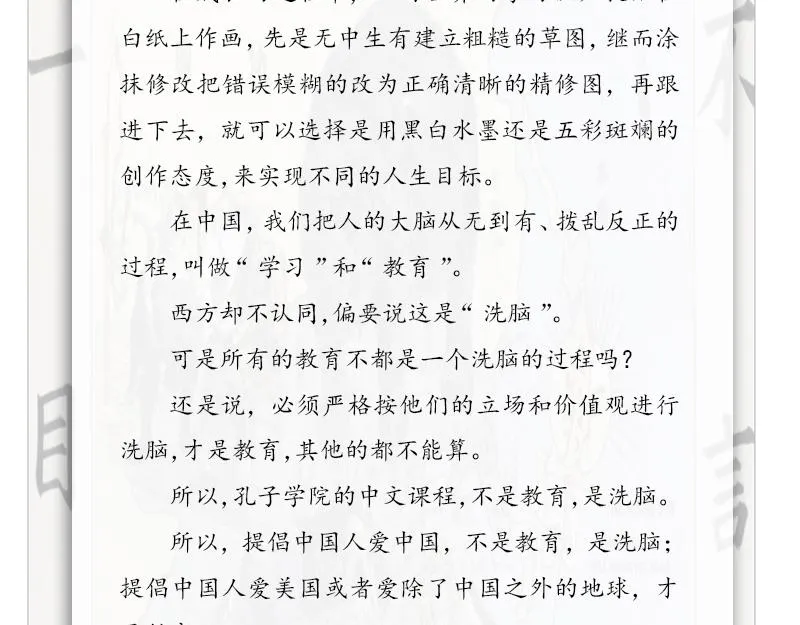 白纸上作画，先是无中生有建立粗糙的草图，继而涂
抹修改把错误模糊的改为正确清晰的精修图，再跟
进下去，就可以选择是用黑白水墨还是五彩斑斓的
创作态度，来实现不同的人生目标。
在中国，我们把人的大脑从无到有、拨乱反正的
过程，叫做“学习”和“教育”。
西方却不认同，偏要说这是“洗脑”。
可是所有的教育不都是一个洗脑的过程吗？
还是说，必须严格按他们的立场和价值观进行
洗脑，才是教育，其他的都不能算。
所以，孔子学院的中文课程，不是教育，是洗脑。
所以，提倡中国人爱中国，不是教育，是洗脑；
提倡中国人爱美国或者爱除了中国之外的地球，才